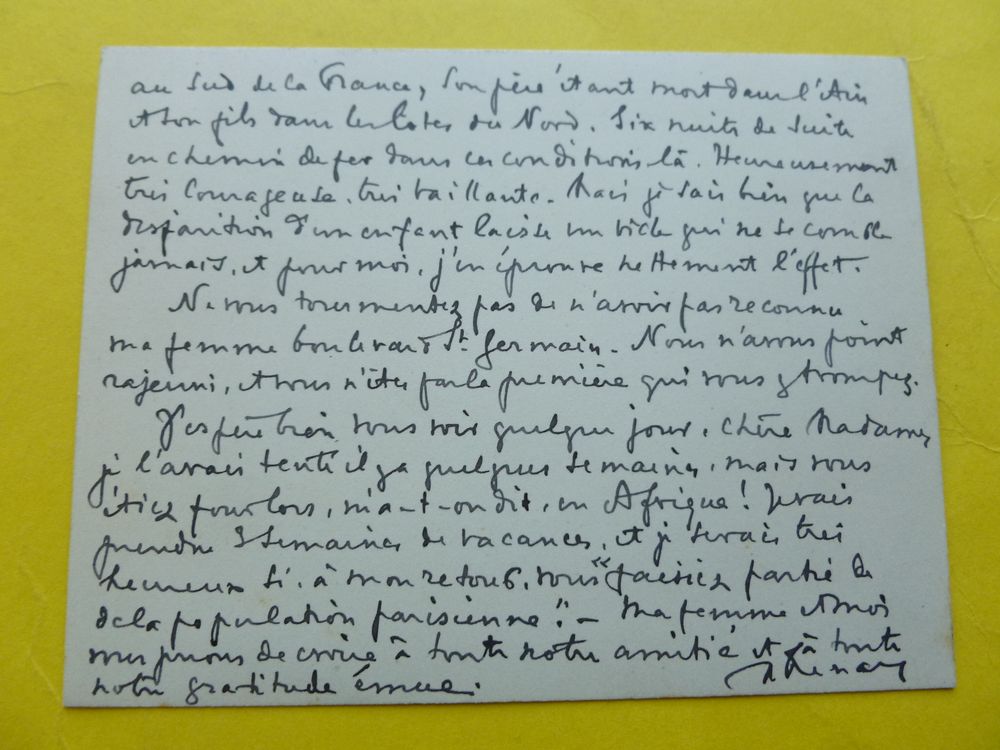 au Sud de la France, Son père étant mort dans l'Ain
et son fils dans les Côtes du Nord. Six nuits de suite
en chemin de fer dans ces conditions là. Heureusement
très Courageuse, très vaillante. Mais je sais bien que la
disparition d'un enfant laisse un vide qui ne se comble
jamais, et pour moi, j'en éprouve nettement l'effet.
Ne vous tourmentez pas de n'avoir pas reconnu
ma femme boulevard St. Germain. Nous n'avons point
rajeuni, et vous n'êtes pas la première qui vous y trompez.
J'espère bien vous voir quelque jour, chère Madame,
je l'avais tenté il y a quelques semaines, mais vous
étiez pour lors, m'a-t-on dit, en Afrique! Je vais
prendre 3 Semaines de vacances, et je serais très
heureux si, à mon retour, vous "faisiez partie de
de la population parisienne". - Ma femme et moi
vous prions de croire à toute notre amitié et à toute
notre gratitude émue.